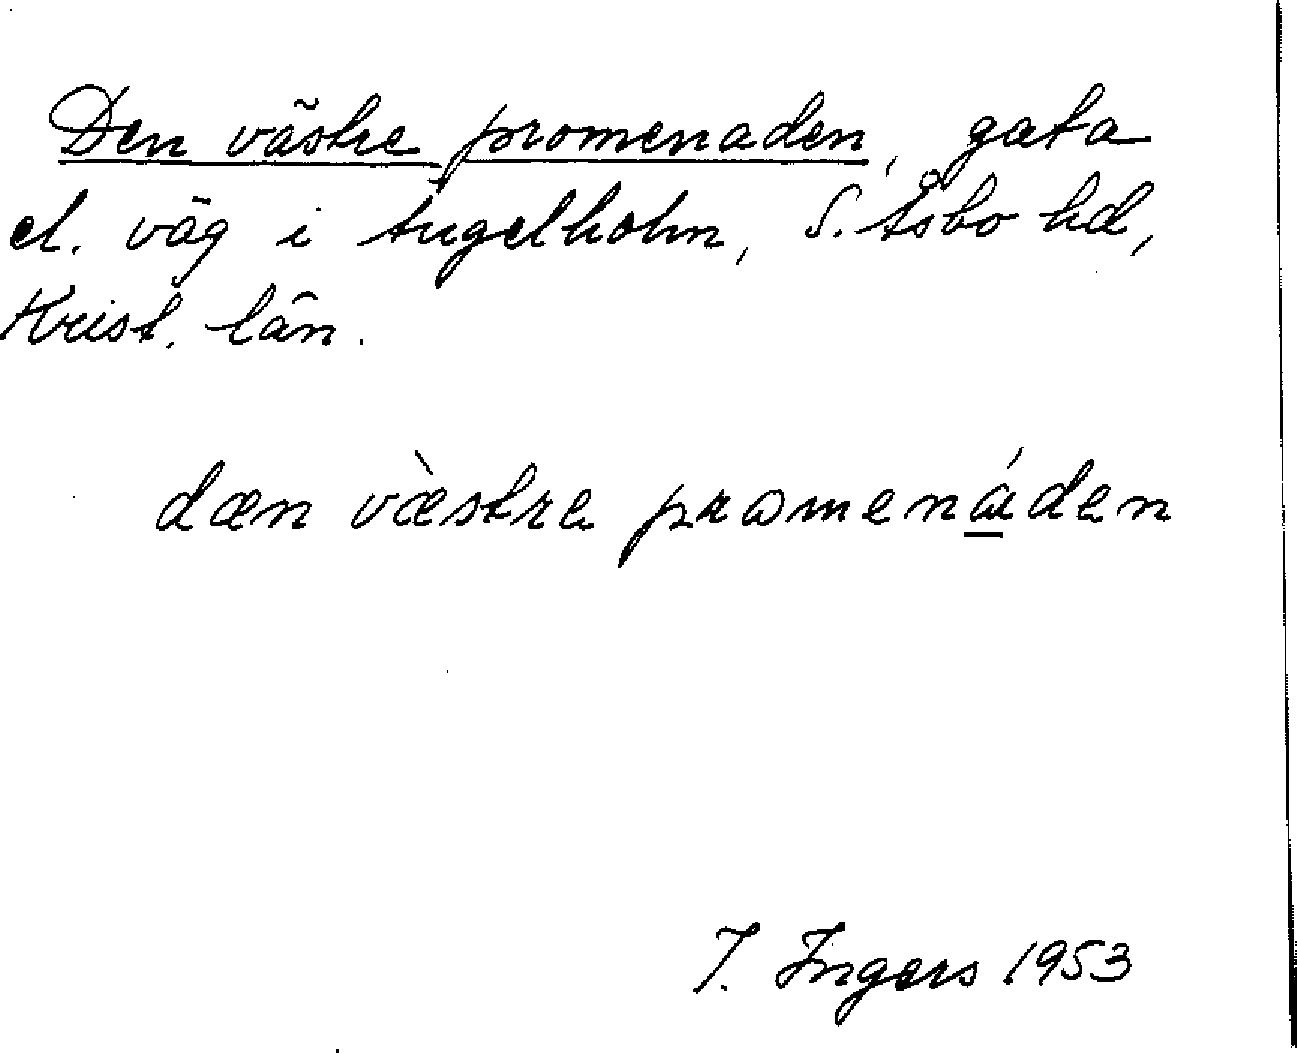 Den västre promenaden, gata
el. väg i Ängelholm, S. Åsbo hd,
Krist. län.
dæn væ̀stre promenáden
I. Ingers 1953